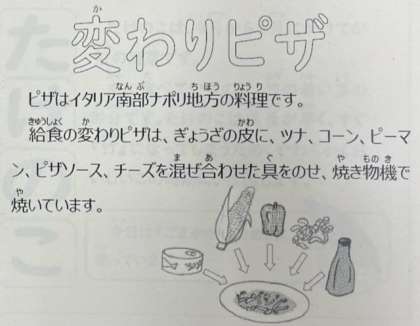 変わりピザ
ピザはイタリア南部ナポリ地方の料理です。
給食の変わりピザは、ぎょうざの皮に、ツナ、コーン、ピーマ
ン、ピザソース、チーズを混ぜ合わせた具をのせ、焼き物機で
焼いています。